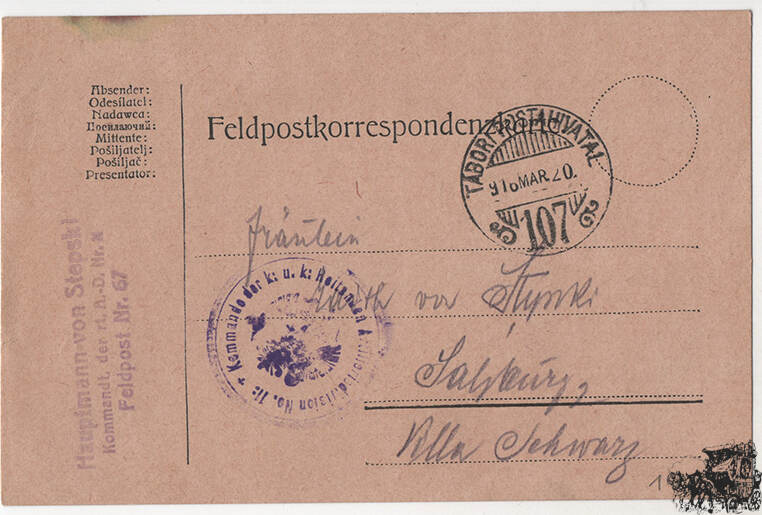 Absender:
Odesílatel:
Nadawca:
Посилаючий:
Mittente:
Pošiljatelj:
Pošiljač:
Presentator:
Feldpostkorrespondenzkarte
TÁBORI POSTAHIVATAL
916 MAR. 20.
107
Hauptmann von Stepski
Kommandt. der rt. A.-D. Nr.
Feldpost Nr. 67
Kommando der k. u. k. Reitenden Artilleriedivision No. 11.
Fräulein
von
Salzburg,
Villa Schwarz